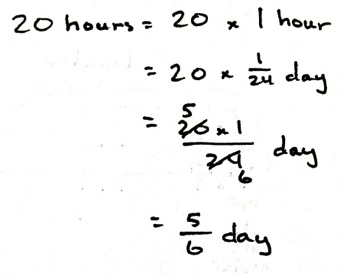 20 hours = 20 × 1 hour
= 20 × 1/24 day
= 5 20 × 1 / 24 6 day
= 5/6 day